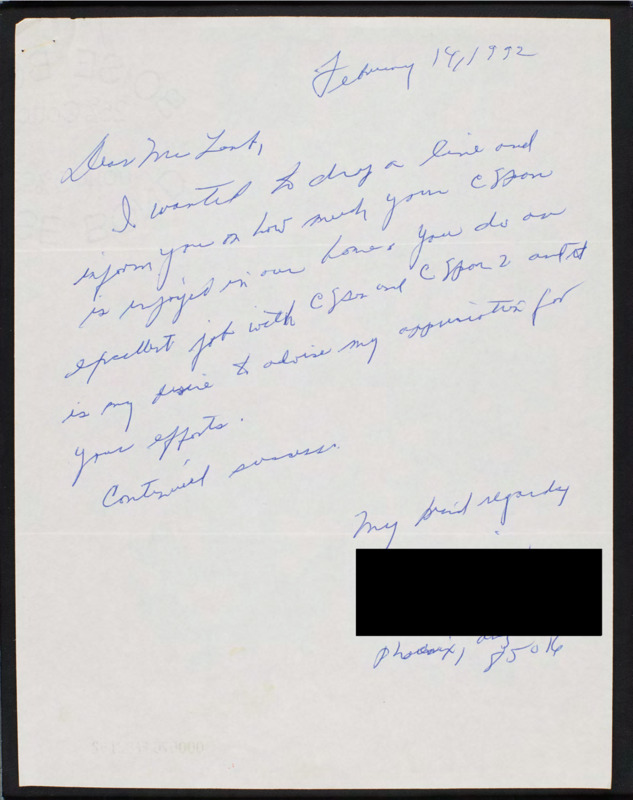 February 14, 1992
Dear Mr Lamb,
I wanted to drop a line and
inform you on how much your C Span
is enjoyed in our home. You do an
excellent job with C Span and C Span 2 and it
is my desire to advise my appreciation for
your efforts.
Continued success.
My kind regards
Phoenix,
85016